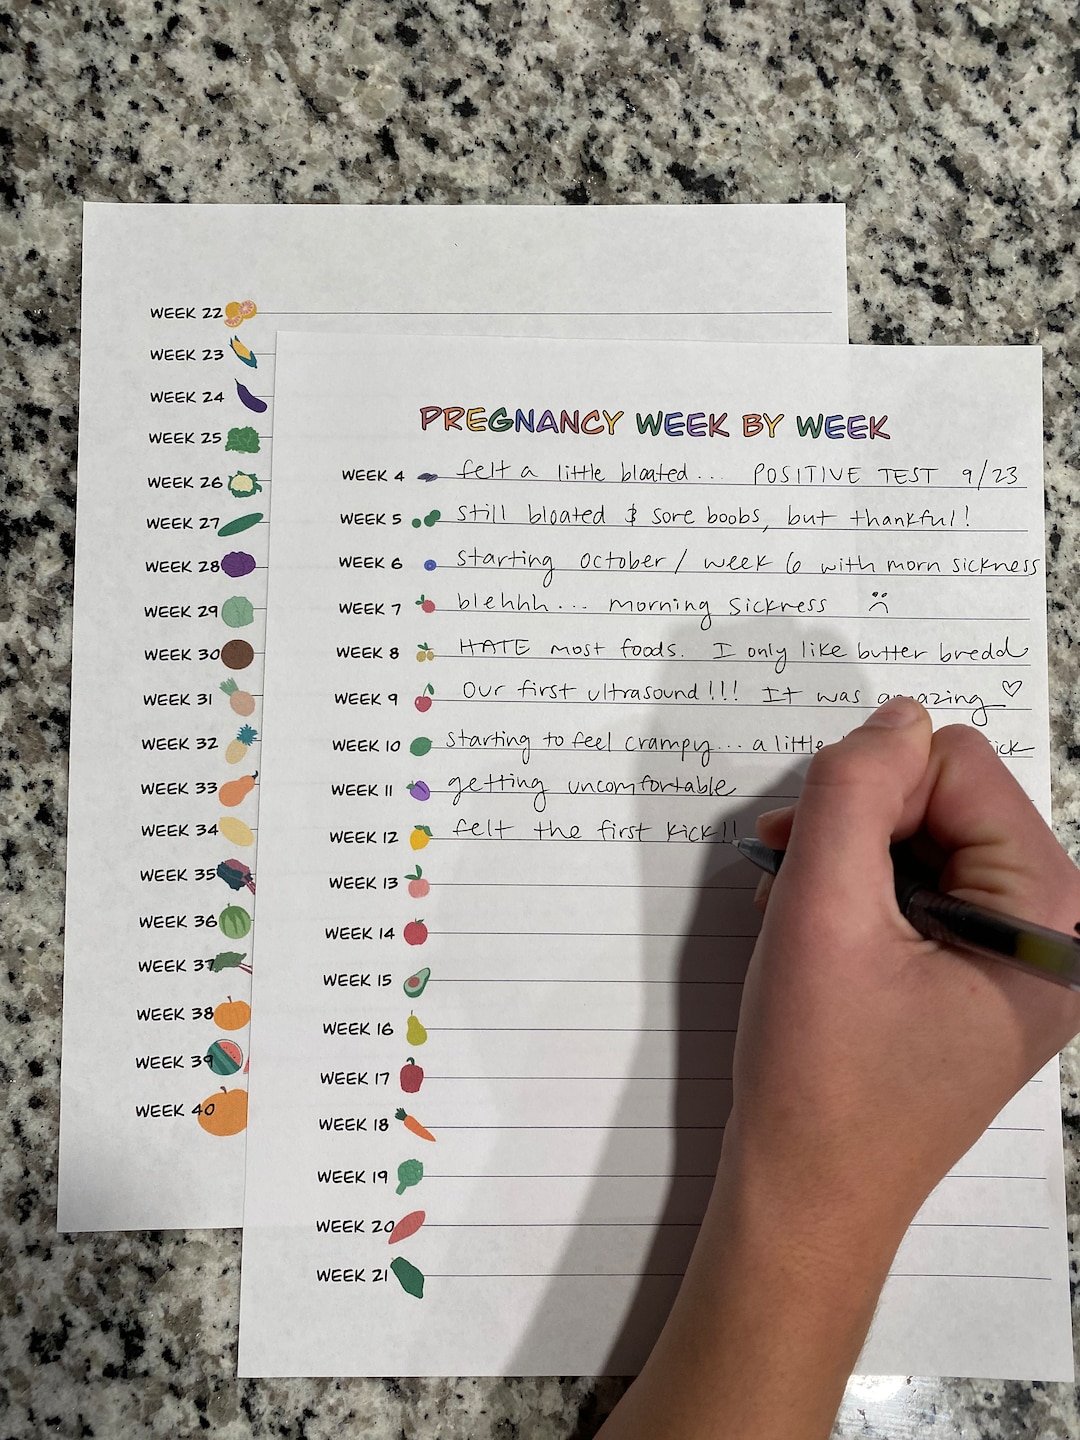 WEEK 22
WEEK 23
WEEK 24
WEEK 25
WEEK 26
WEEK 27
WEEK 28
WEEK 29
WEEK 30
WEEK 31
WEEK 32
WEEK 33
WEEK 34
WEEK 35
WEEK 36
WEEK 37
WEEK 38
WEEK 39
WEEK 40
PREGNANCY WEEK BY WEEK
WEEK 4 felt a little bloated... POSITIVE TEST 9/23
WEEK 5 Still bloated & sore boobs, but thankful!
WEEK 6 starting october / week 6 with morn sickness
WEEK 7 blehhh... morning sickness
WEEK 8 HATE most foods. I only like butter bredd
WEEK 9 Our first ultrasound!!! It was amazing ♡
WEEK 10 starting to feel crampy... a little
WEEK 11 getting uncomfortable
WEEK 12 felt the first kick!!
WEEK 13
WEEK 14
WEEK 15
WEEK 16
WEEK 17
WEEK 18
WEEK 19
WEEK 20
WEEK 21